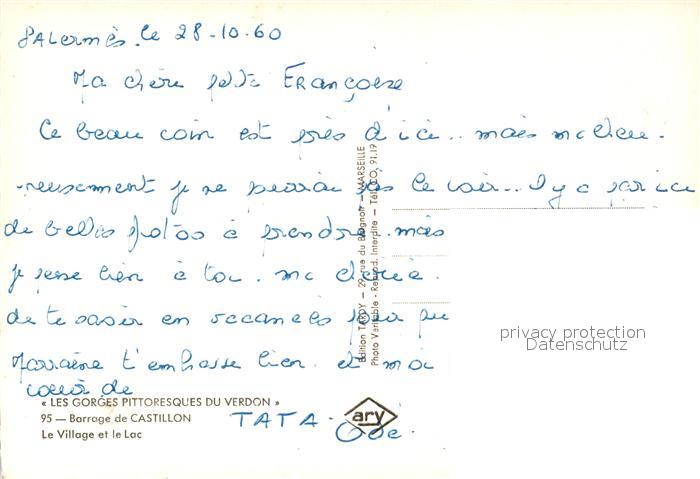 PALermès. le 28-10-60
Ma chère petite FRANçoise
Ce beau coin est près d'ici.. mais malheu-
-reusement je ne pourrai pas le voir.. Il y a par ici
de belles photos à prendre. mais
je pense bien à toi. ma chérie.
de te savoir en vacances pour que
Marraine t'embrasse bien. et moi
cœur de
TATA. Odé.
« LES GORGES PITTORESQUES DU VERDON »
95 — Barrage de CASTILLON
Le Village et le Lac
ary
Edition TARDY — 29, rue du Baignoir — MARSEILLE
Photo Véritable - Reprod. Interdite - Tél. CO. 91.19
privacy protection
Datenschutz